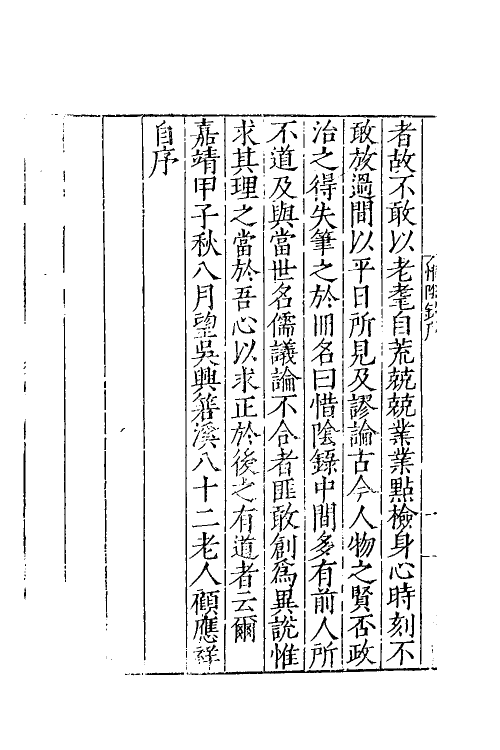 者故不敢以老耄自荒兢兢業業點檢身心時刻不
敢放過間以平日所見及謬論古今人物之賢否政
治之得失筆之於冊名曰惜陰錄中間多有前人所
不道及與當世名儒議論不合者匪敢創為異說惟
求其理之當於吾心以求正於後之有道者云爾
嘉靖甲子秋八月望吳興箬溪八十二老人顧應祥
自序